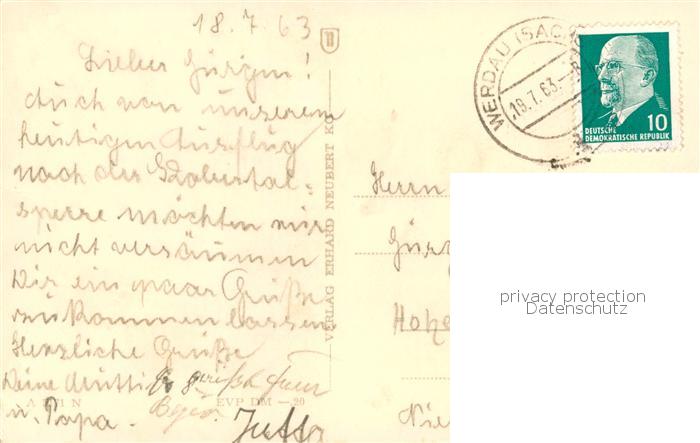 18.7.63
Lieber Jürgen!
Auch von unserem
heutigen Ausflug
nach der Koberbachtal-
sperre möchten wir
nicht versäumen
Dir ein paar Grüße
zukommen lassen
Herzliche Grüße
Deine Mutti
u. Papa.
Jutta
VERLAG ERHARD NEUBERT KG
N EVP DM —20
WERDAU (SACHS)
19.7.63
10
DEUTSCHE
DEMOKRATISCHE REPUBLIK
Herrn
privacy protection
Datenschutz